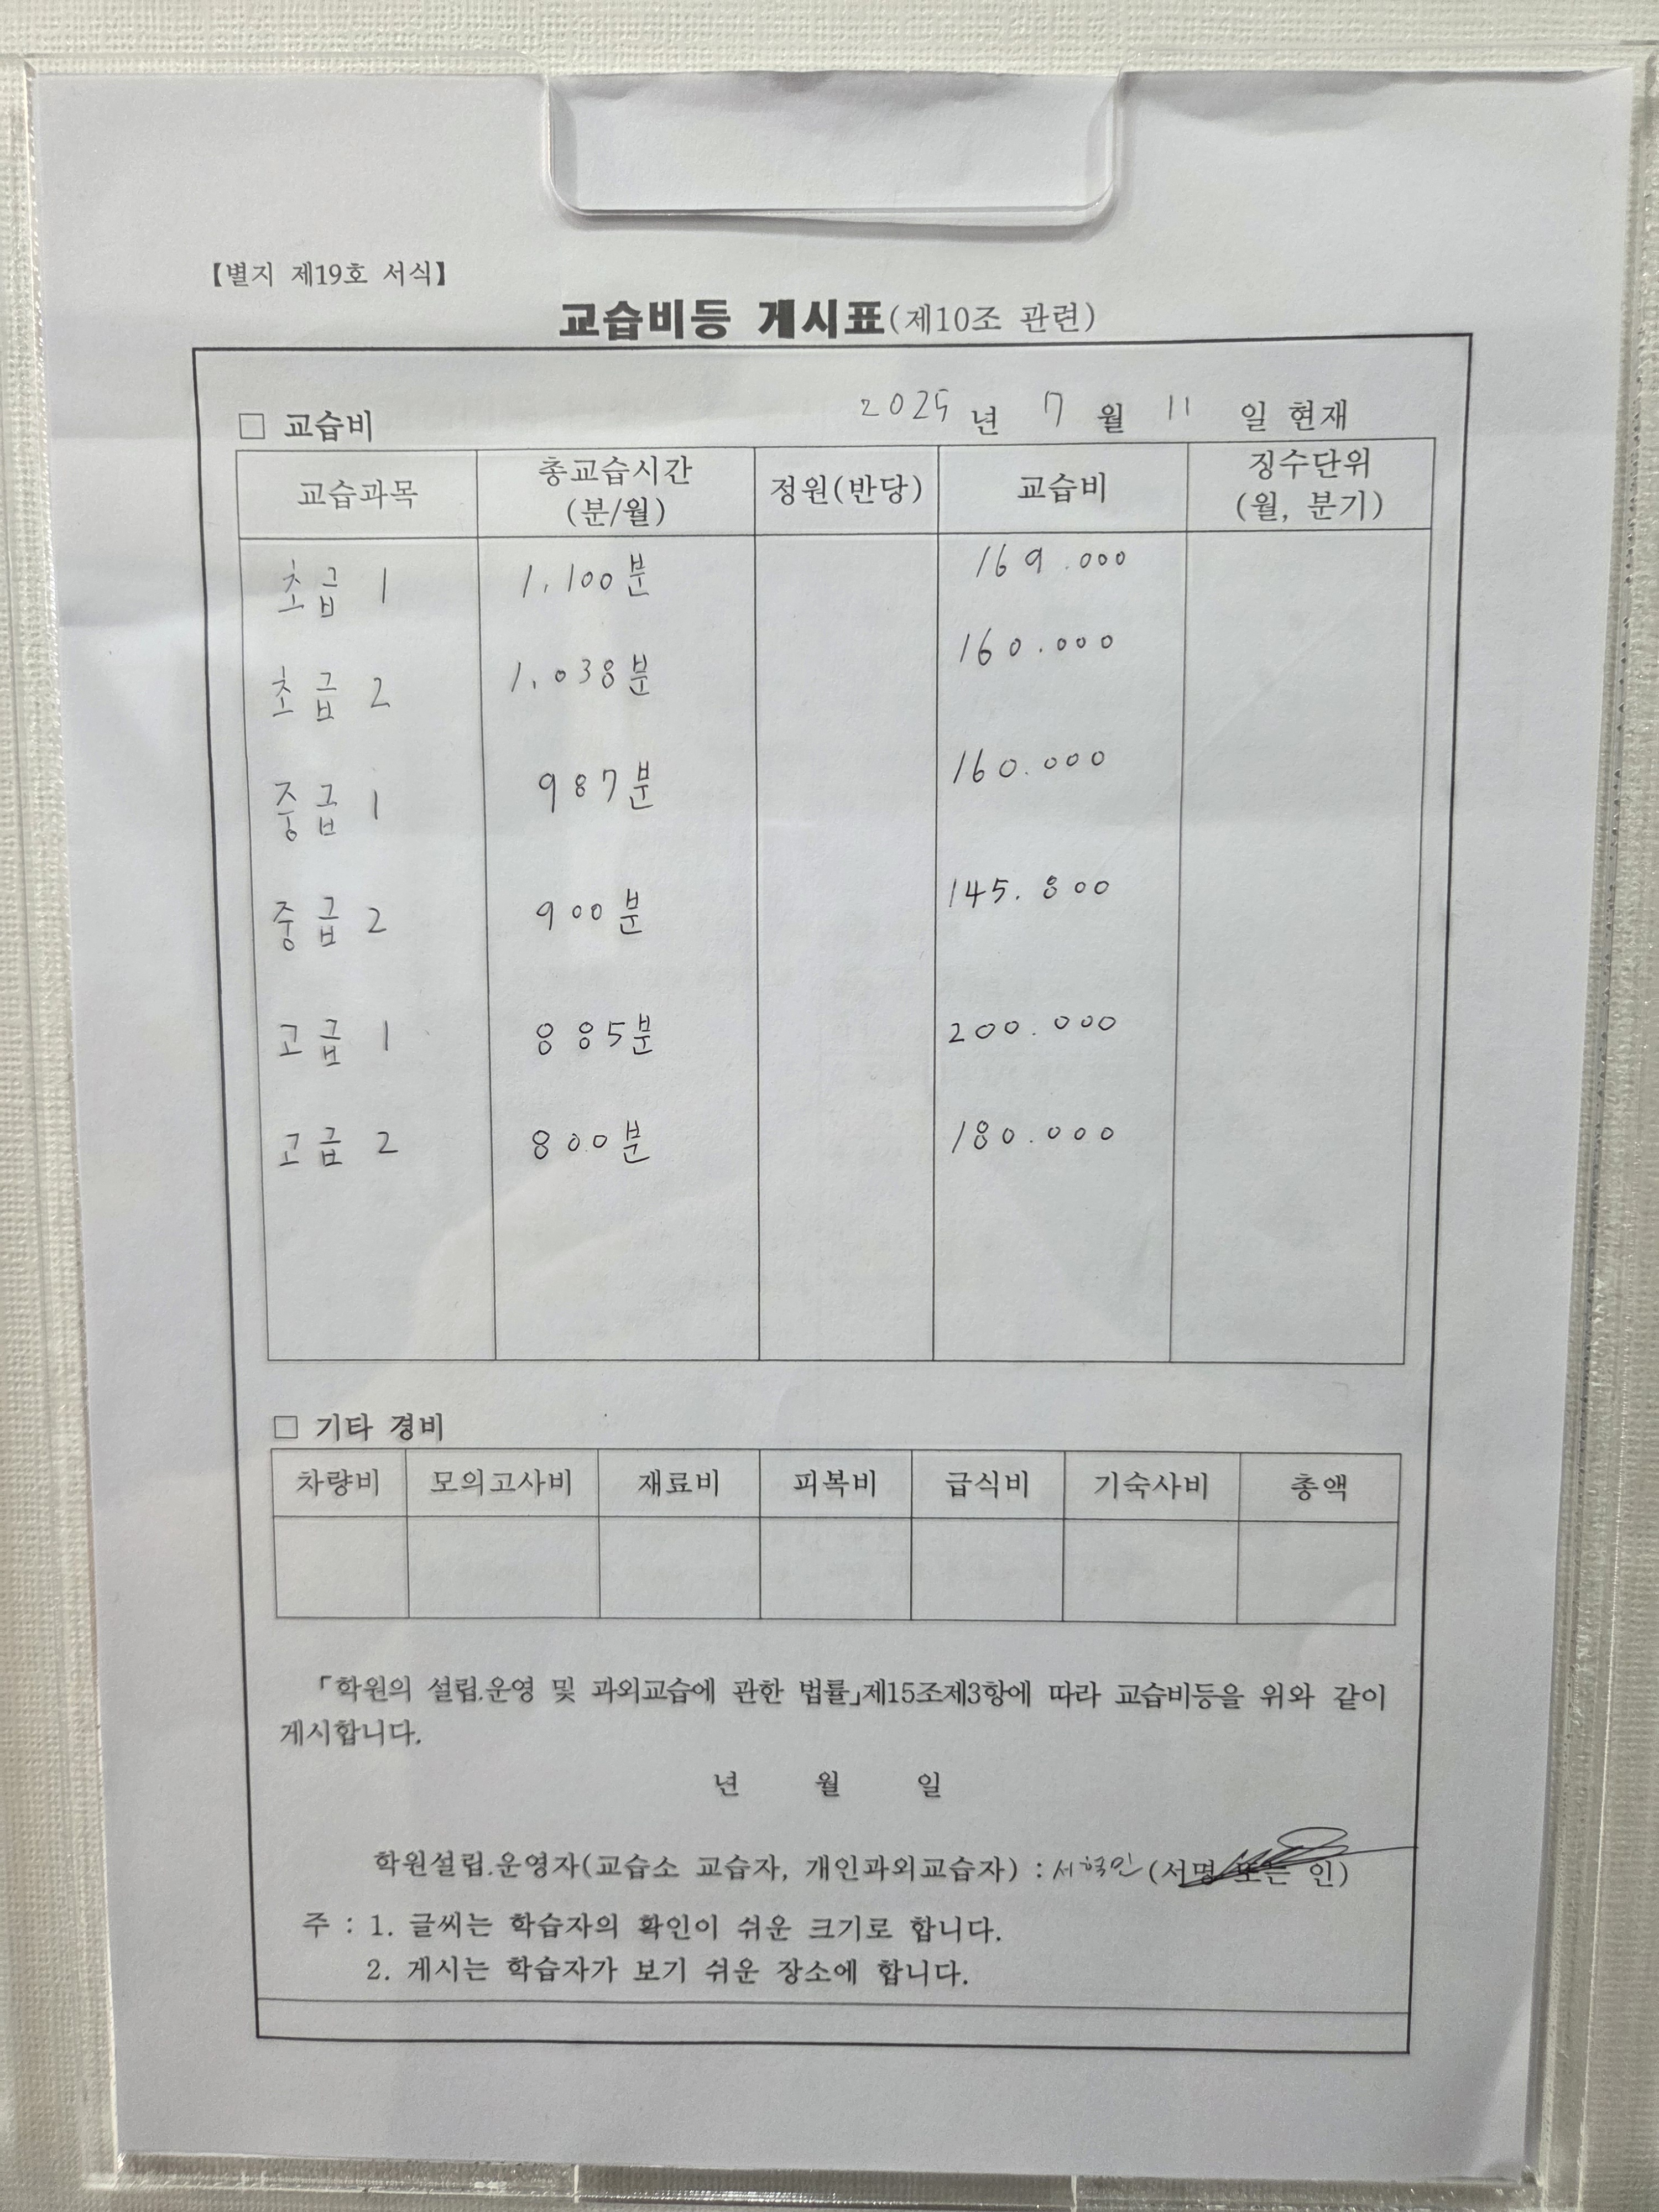 【별지 제19호 서식】
교습비등 게시표(제10조 관련)
□ 교습비 2025 년 7 월 11 일 현재
교습과목 총교습시간 (분/월) 정원(반당) 교습비 징수단위 (월, 분기)
초급 1 1,100분 169.000
초급 2 1,038분 160.000
중급 1 987분 160.000
중급 2 900분 145.800
고급 1 885분 200.000
고급 2 800분 180.000
□ 기타 경비
차량비 모의고사비 재료비 피복비 급식비 기숙사비 총액
「학원의 설립.운영 및 과외교습에 관한 법률」제15조제3항에 따라 교습비등을 위와 같이
게시합니다.
년 월 일
학원설립.운영자(교습소 교습자, 개인과외교습자) : (서명 또는 인)
주 : 1. 글씨는 학습자의 확인이 쉬운 크기로 합니다.
2. 게시는 학습자가 보기 쉬운 장소에 합니다.